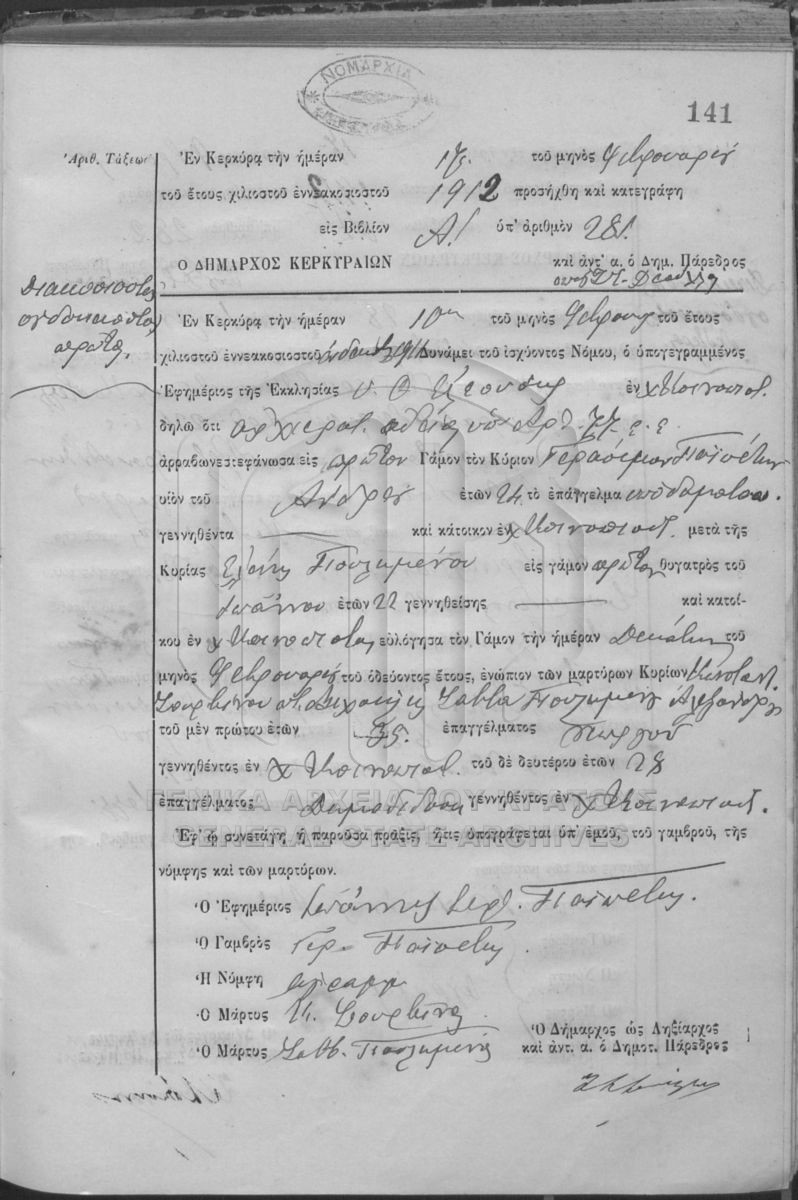 ΝΟΜΑΡΧΙΑ
141
Ἀριθ. Τάξεως
Ἐν Κερκύρᾳ τὴν ἡμέραν 17. τοῦ μηνὸς Φεβρουαρίου
τοῦ ἔτους χιλιοστοῦ ἐννεακοσιοστοῦ 1912 προσήχθη καὶ κατεγράφη
εἰς Βιβλίον Α! ὑπ' ἀριθμὸν 281.
Ο ΔΗΜΑΡΧΟΣ ΚΕΡΚΥΡΑΙΩΝ καὶ ἀντ' α. ὁ Δημ. Πάρεδρος
Διακοσιοστὴ
ὀγδοηκοστὴ
πρώτη,
Ἐν Κερκύρᾳ τὴν ἡμέραν 10ην τοῦ μηνὸς Φεβρουαρ τοῦ ἔτους
χιλιοστοῦ ἐννεακοσιοστοῦ Δυνάμει τοῦ ἰσχύοντος Νόμου, ὁ ὑπογεγραμμένος
Ἐφημέριος τῆς Ἐκκλησίας ἐν χ Κυνοπιαστ.
δηλῶ ὅτι ἀρχιερατ. ἀδείᾳ ὑπ' ἀρ. 77. ἐ. ἐ
ἀρραβωνεστεφάνωσα εἰς πρῶτον Γάμον τὸν Κύριον Γεράσιμον Παϊπέτην
υἱὸν τοῦ Ἀνδρέου ἐτῶν 24 τὸ ἐπάγγελμα ὑποδηματοπ.
γεννηθέντα — καὶ κάτοικον ἐν χ Κυνοπιαστ. μετὰ τῆς
Κυρίας Ἑλένης Πουλημένου εἰς γάμον πρῶτον θυγατρὸς τοῦ
Ἰωάννου ἐτῶν 22 γεννηθείσης — καὶ κατοί-
κου ἐν χ Κυνοπιαστας εὐλόγησα τὸν Γάμον τὴν ἡμέραν Δεκάτην τοῦ
μηνὸς Φεβρουαρίου τοῦ ὁδεύοντος ἔτους, ἐνώπιον τῶν μαρτύρων Κυρίων Κωνσταντ.
Σουρβίνου Σάββα Πουλημένου Ἀλεξάνδρου
τοῦ μὲν πρώτου ἐτῶν 35. ἐπαγγέλματος γεωργοῦ
γεννηθέντος ἐν χ Κυνοπιαστ. τοῦ δὲ δευτέρου ἐτῶν 28
ἐπαγγέλματος Δημοδιδασκ γεννηθέντος ἐν χ Κυνοπιαστ.
ΓΕΝΙΚΑ ΑΡΧΕΙΑ ΤΟΥ ΚΡΑΤΟΥΣ
GENERAL STATE ARCHIVES
Ἐφ' ᾧ συνετάγη ἡ παροῦσα πρᾶξις, ἥτις ὑπογράφεται ὑπ' ἐμοῦ, τοῦ γαμβροῦ, τῆς
νύμφης καὶ τῶν μαρτύρων.
Ὁ Ἐφημέριος Ἰωάννης Ἱερ. Παϊπέτης.
Ὁ Γαμβρὸς Γερ. Παϊπέτης.
Ἡ Νύμφη ἀγράμμ
Ὁ Μάρτυς Κ. Σουρβίνος
Ὁ Μάρτυς Σάββ. Πουλημένος
Ὁ Δήμαρχος ὡς Ληξίαρχος
καὶ ἀντ. α. ὁ Δημοτ. Πάρεδρος